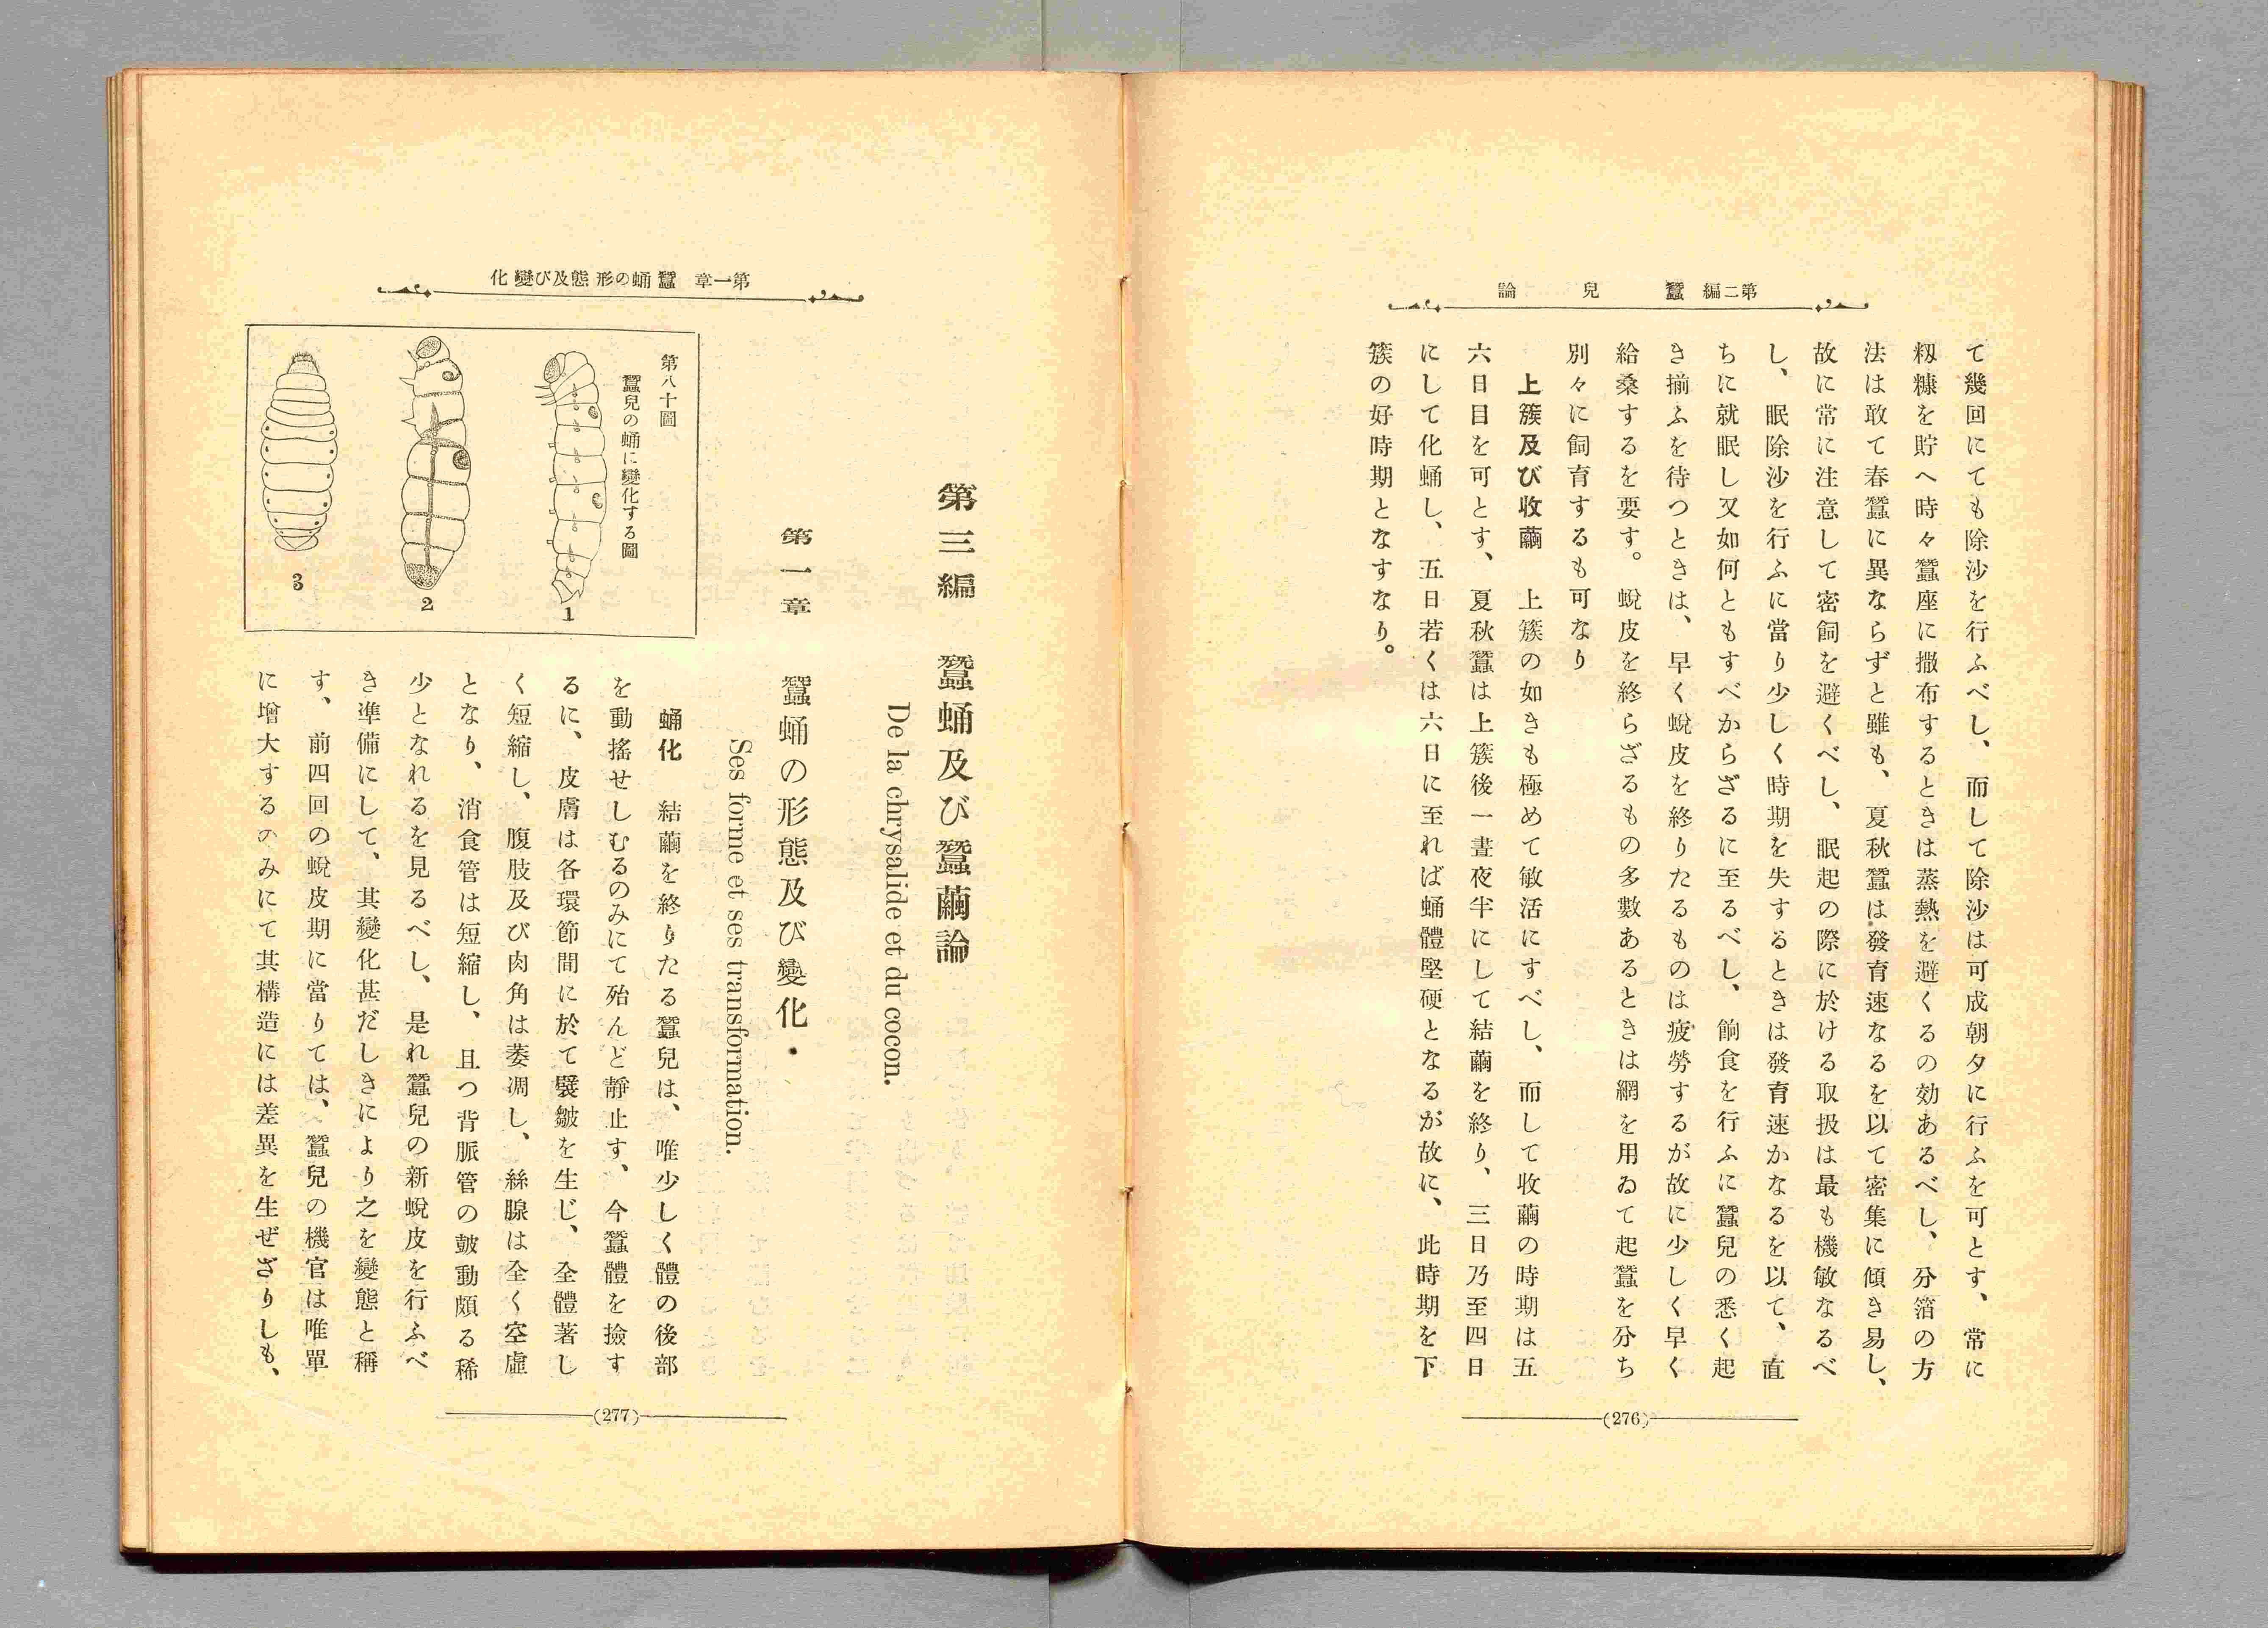 第二編　蠶兒論
て幾回にても除沙を行ふべし、而して除沙は可成朝夕に行ふを可とす、常に
籾糠を貯へ時々蠶座に撒布するときは蒸熱を避くるの効あるべし、分箔の方
法は敢て春蠶に異ならずと雖も、夏秋蠶は發育速なるを以て密集に傾き易し、
故に常に注意して密飼を避くべし、眠起の際に於ける取扱は最も機敏なるべ
し、眠除沙を行ふに當り少しく時期を失するときは發育速かなるを以て、直
ちに就眠し又如何ともすべからざるに至るべし、餉食を行ふに蠶兒の悉く起
き揃ふを待つときは、早く蛻皮を終りたるものは疲勞するが故に少しく早く
給桑するを要す。蛻皮を終らざるもの多數あるときは網を用ゐて起蠶を分ち
別々に飼育するも可なり
上簇及び收繭　上簇の如きも極めて敏活にすべし、而して收繭の時期は五
六日目を可とす、夏秋蠶は上簇後一晝夜半にして結繭を終り、三日乃至四日
にして化蛹し、五日若くは六日に至れば蛹體堅硬となるが故に、此時期を下
簇の好時期となすなり。
(276)
第一章　蠶蛹の形態及び變化
第三編　蠶蛹及び蠶繭論
De la chrysalide et du cocon.
第一章　蠶蛹の形態及び變化
Ses forme et ses transformation.
第八十圖
蠶兒の蛹に變化する圖
1
2
3
蛹化　結繭を終りたる蠶兒は、唯少しく體の後部
を動搖せしむるのみにて殆んど靜止す、今蠶體を撿す
るに、皮膚は各環節間に於て襞皺を生じ、全體著し
く短縮し、腹肢及び肉角は萎凋し、絲腺は全く空虛
となり、消食管は短縮し、且つ背脈管の皷動頗る稀
少となれるを見るべし、是れ蠶兒の新蛻皮を行ふべ
き準備にして、其變化甚だしきにより之を變態と稱
す、前四回の蛻皮期に當りては、蠶兒の機官は唯單
に增大するのみにて其構造には差異を生ぜざりしも、
(277)